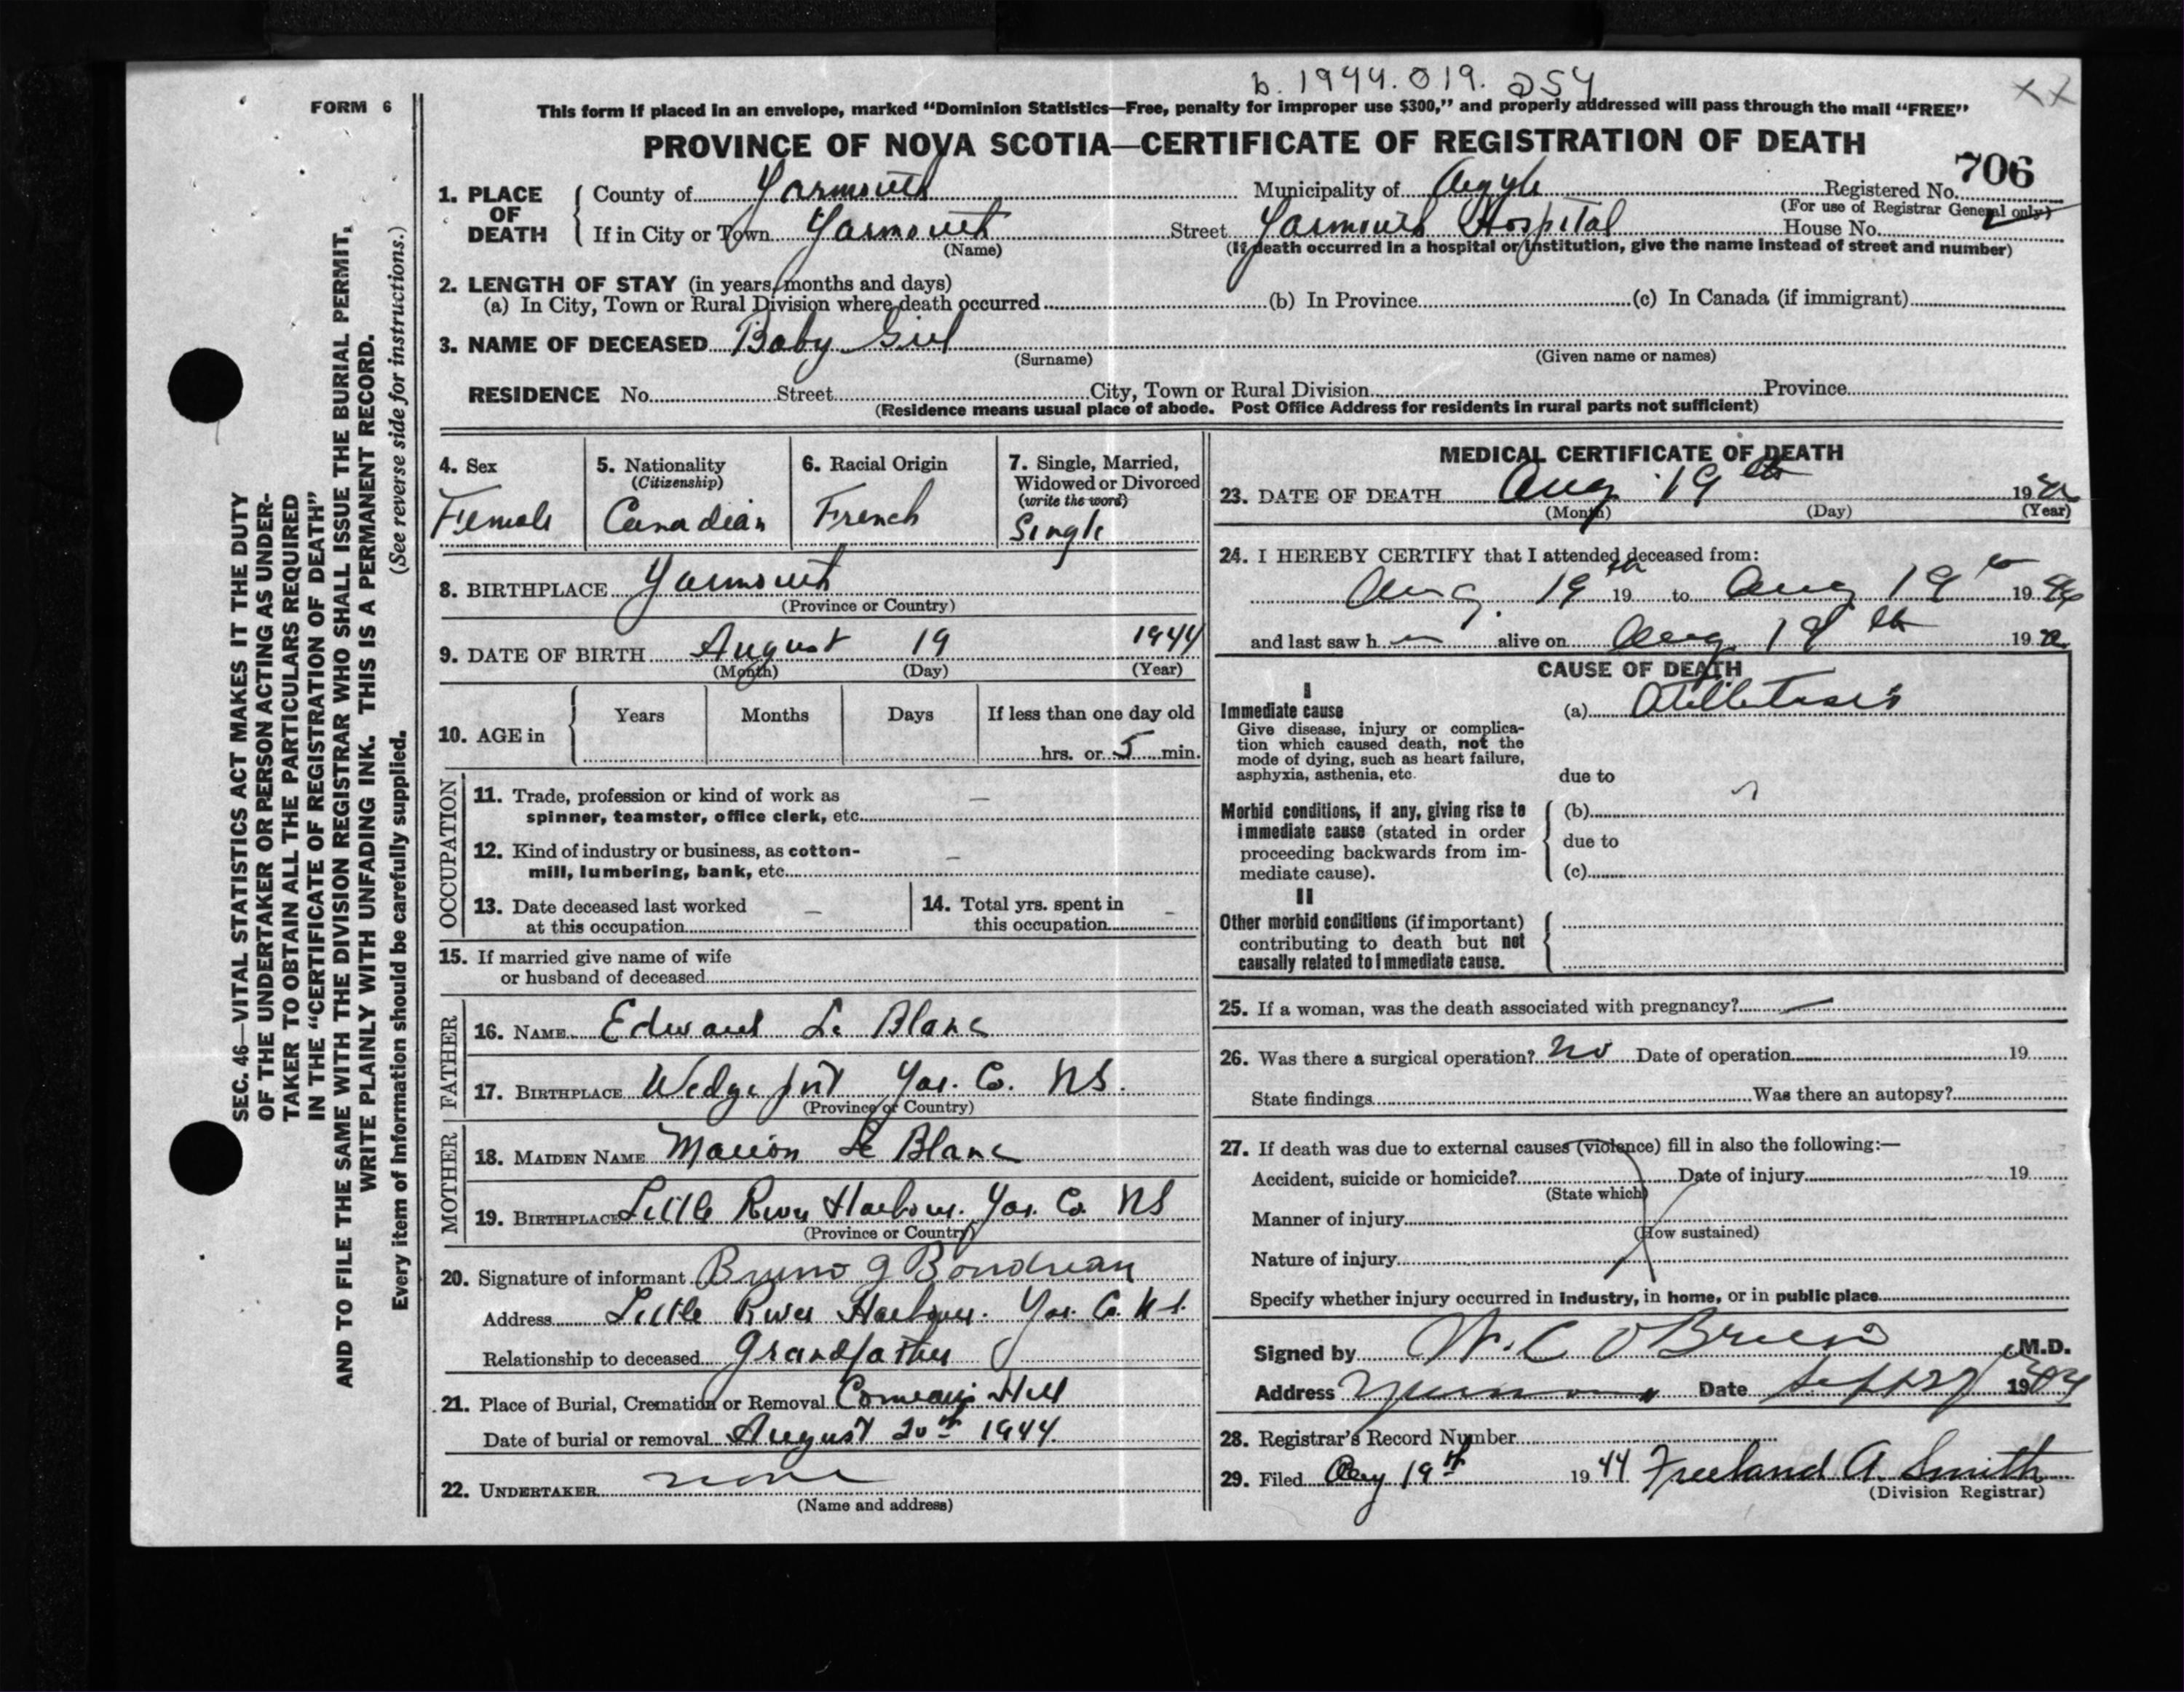 b. 1944.019.254
XX
FORM 6
This form if placed in an envelope, marked “Dominion Statistics—Free, penalty for improper use $300,” and properly addressed will pass through the mail “FREE”
PROVINCE OF NOVA SCOTIA—CERTIFICATE OF REGISTRATION OF DEATH
706
1. PLACE OF DEATH
County of Yarmouth Municipality of Argyle Registered No.
(For use of Registrar General only)
If in City or Town Yarmouth Street Yarmouth Hospital House No.
(Name) (If death occurred in a hospital or institution, give the name instead of street and number)
2. LENGTH OF STAY (in years, months and days)
(a) In City, Town or Rural Division where death occurred (b) In Province (c) In Canada (if immigrant)
3. NAME OF DECEASED Baby Girl
(Surname) (Given name or names)
RESIDENCE No. Street City, Town or Rural Division Province
(Residence means usual place of abode. Post Office Address for residents in rural parts not sufficient)
4. Sex
Female
5. Nationality
(Citizenship)
Canadian
6. Racial Origin
French
7. Single, Married,
Widowed or Divorced
(write the word)
Single
8. BIRTHPLACE Yarmouth
(Province or Country)
9. DATE OF BIRTH August 19 1944
(Month) (Day) (Year)
10. AGE in
Years Months Days If less than one day old
hrs. or 5 min.
OCCUPATION
11. Trade, profession or kind of work as —
spinner, teamster, office clerk, etc.
12. Kind of industry or business, as cotton- —
mill, lumbering, bank, etc.
13. Date deceased last worked —
at this occupation
14. Total yrs. spent in —
this occupation
15. If married give name of wife
or husband of deceased
FATHER
16. NAME Edward Le Blanc
17. BIRTHPLACE Wedgeport Yar. Co. NS.
(Province or Country)
MOTHER
18. MAIDEN NAME Marion Le Blanc
19. BIRTHPLACE Little River Harbour. Yar. Co. NS
(Province or Country)
20. Signature of informant Bruno J Boudreau
Address Little River Harbour. Yar. Co. N.S.
Relationship to deceased Grandfather
21. Place of Burial, Cremation or Removal Comeau's Hill
Date of burial or removal August 20th 1944.
22. UNDERTAKER none
(Name and address)
MEDICAL CERTIFICATE OF DEATH
23. DATE OF DEATH Aug 19th 19
(Month) (Day) (Year)
24. I HEREBY CERTIFY that I attended deceased from:
Aug. 19th 19 to Aug 19th 19
and last saw h alive on Aug 19th 19
CAUSE OF DEATH
I
Immediate cause
Give disease, injury or complica-
tion which caused death, not the
mode of dying, such as heart failure,
asphyxia, asthenia, etc.
(a) Atelectasis
due to
Morbid conditions, if any, giving rise to
immediate cause (stated in order
proceeding backwards from im-
mediate cause).
(b)
due to
(c)
II
Other morbid conditions (if important)
contributing to death but not
causally related to immediate cause.
25. If a woman, was the death associated with pregnancy? —
26. Was there a surgical operation? No Date of operation 19
State findings Was there an autopsy?
27. If death was due to external causes (violence) fill in also the following:—
Accident, suicide or homicide? Date of injury 19
(State which)
Manner of injury
(How sustained)
Nature of injury
Specify whether injury occurred in industry, in home, or in public place
Signed by W. C O'Brien M.D.
Address Yarmouth Date Sept 27 19
28. Registrar's Record Number
29. Filed Aug 19th 1944 Freeland A. Smith
(Division Registrar)
SEC. 46—VITAL STATISTICS ACT MAKES IT THE DUTY
OF THE UNDERTAKER OR PERSON ACTING AS UNDER-
TAKER TO OBTAIN ALL THE PARTICULARS REQUIRED
IN THE “CERTIFICATE OF REGISTRATION OF DEATH”
AND TO FILE THE SAME WITH THE DIVISION REGISTRAR WHO SHALL ISSUE THE BURIAL PERMIT.
WRITE PLAINLY WITH UNFADING INK. THIS IS A PERMANENT RECORD.
Every item of information should be carefully supplied. (See reverse side for instructions.)